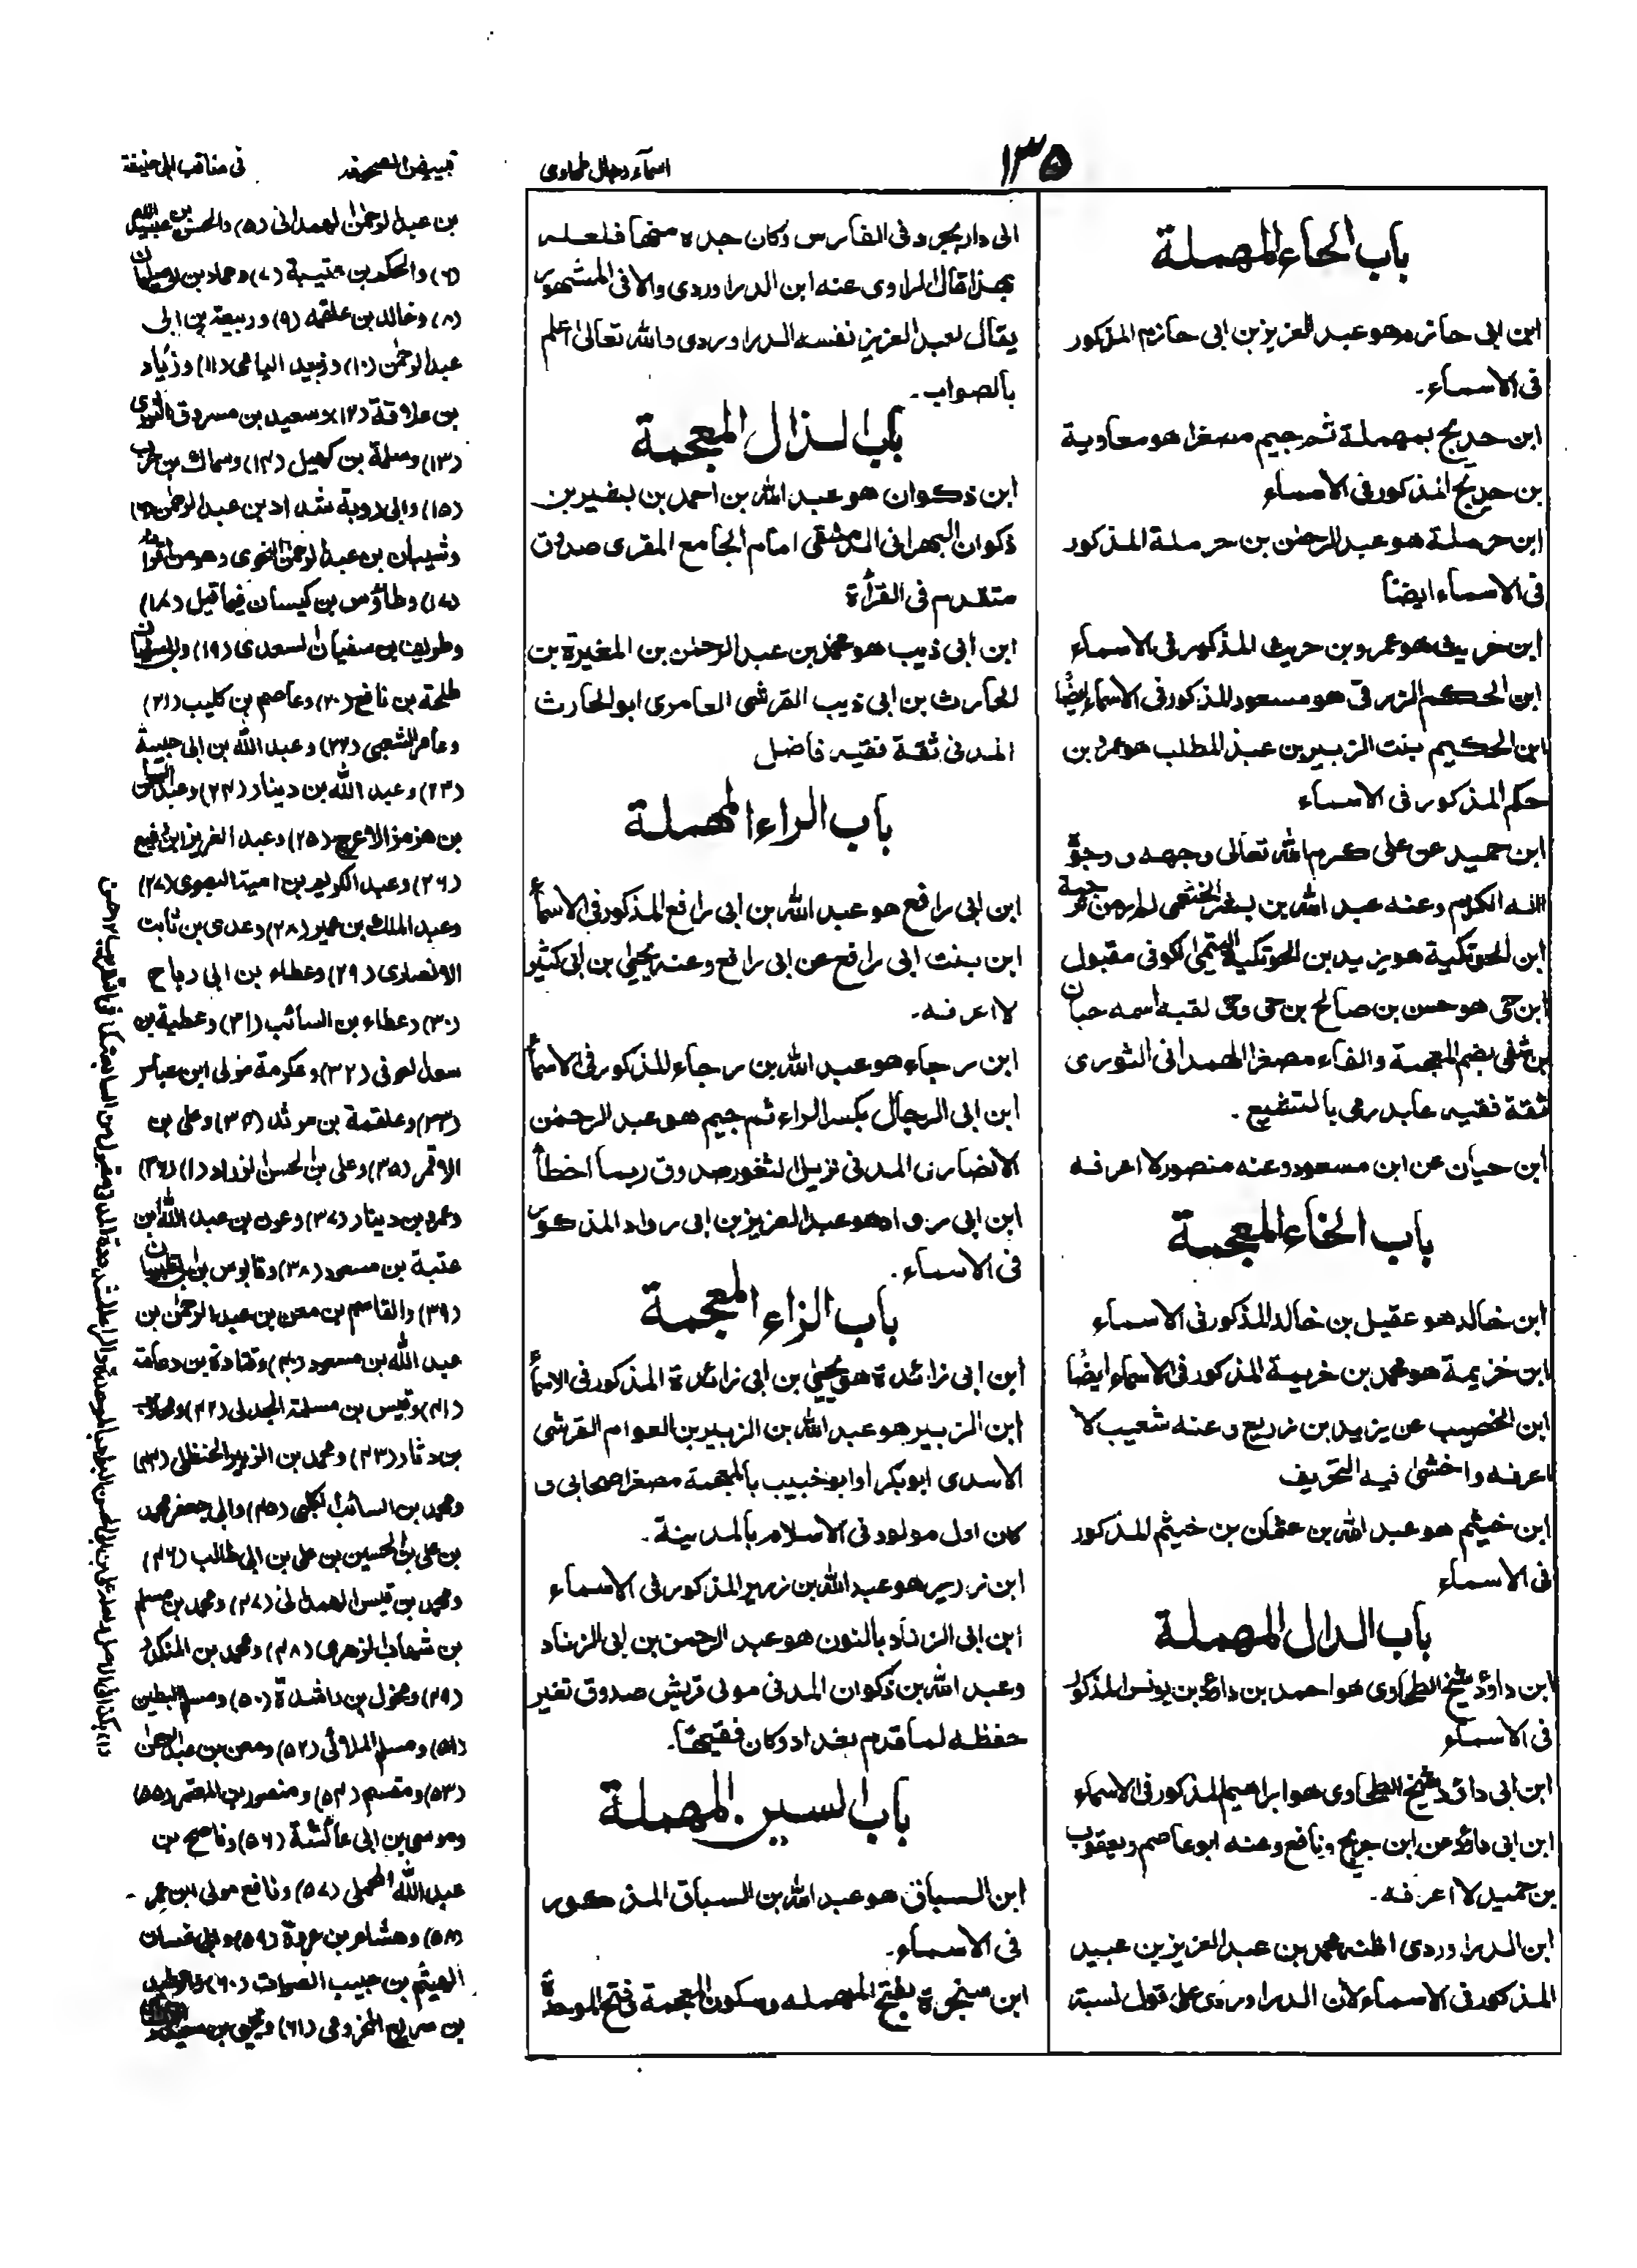 ١٣٥
اسماء رجال طحاوى
تبييض الصحيفة
فى مناقب ابى حنيفة
باب الحاء المهملة
ابن ابى حازم هو عبد العزيز بن ابى حازم المذكور
فى الاسماء۔
ابن حديج بمهملة ثم جيم مصغرا هو معاوية
بن حديج المذكور فى الاسماء
ابن حرملة هو عبد الرحمٰن بن حرملة المذكور
فى الاسماء ايضاً
ابن حريث هو عمرو بن حريث المذكور فى الاسماء
ابن الحكم الزرقى هو مسعود المذكور فى الاسماء ايضًا
ابن الحكيم بنت الزبير بن عبد المطلب هو عمرو بن
حكم المذكور فى الاسماء
ابن حميد عن على كرم الله تعالى وجهه و وجوة
اٰله الكرام وعنه عبد الله بن بشر الخثعمى لم ار من ترجمه
ابن الحوتكية هو يزيد بن الحوتكية التميمى الكوفى مقبول
ابن حى هو حسن بن صالح بن حى وحى لقبه اسمه حيان
بن شفى بضم المعجمة والفاء مصغرا الهمدانى الثورى
ثقة فقيه عابد رمى بالتشيع۔
ابن حيان عن ابن مسعود وعنه منصور لا اعرفه
باب الخاء المعجمة
ابن خالد هو عقيل بن خالد المذكور فى الاسماء
ابن خزيمة هو محمد بن خزيمة المذكور فى الاسماء ايضًا
ابن الخصيب عن يزيد بن زريع وعنه شعيب لا
اعرفه واخشىٰ فيه التحريف
ابن خثيم هو عبد الله بن عثمان بن خثيم المذكور
فى الاسماء
باب الدال المهملة
ابن داؤد شيخ الطحاوى هو احمد بن داؤد بن يونس المذكور
فى الاسماء
ابن ابى داؤد شيخ الطحاوى هو ابراهيم المذكور فى الاسماء
ابن ابى داؤد عن ابن جريج ونافع وعنه ابو عاصم ويعقوب
بن حميد لا اعرفه۔
ابن الدراوردى اظنه محمد بن عبد العزيز بن عبيد
المذكور فى الاسماء لأن الدراوردى على قول نسبة
الى دار بجرد فى الفارس وكان جده منها فلعله
بهذا قال الراوى عنه ابن الدراوردى والا فى المشهور
يقال لعبد العزيز نفسه الدراوردى والله تعالى اعلم
بالصواب۔
باب الذال المعجمة
ابن ذكوان هو عبد الله بن احمد بن بشير بن
ذكوان البهرانى الدمشقى امام الجامع المقرى صدوق
متقدم فى القرأة
ابن ابى ذيب هو محمد بن عبد الرحمٰن بن المغيرة بن
الحارث بن ابى ذيب القرشى العامرى ابو الحارث
المدنى ثقة فقيه فاضل
باب الراء المهملة
ابن ابى رافع هو عبد الله بن ابى رافع المذكور فى الاسماء
ابن بنت ابى رافع عن ابى رافع وعنه يحيىٰ بن ابى كثير
لا اعرفه۔
ابن رجاء هو عبد الله بن رجاء المذكور فى الاسماء
ابن ابى الرجال بكسر الراء ثم جيم هو عبد الرحمٰن
الانصارى المدنى نزيل الثغور صدوق ربما اخطأ
ابن ابى رواد هو عبد العزيز بن ابى رواد المذكور
فى الاسماء۔
باب الزاء المعجمة
ابن ابى زائدة هو يحيىٰ بن ابى زائدة المذكور فى الاسماء
ابن الزبير هو عبد الله بن الزبير بن العوام القرشى
الاسدى ابو بكر او ابو خبيب بالمعجمة مصغرا صحابى و
كان اول مولود فى الاسلام بالمدينة۔
ابن زرير هو عبد الله بن زرير المذكور فى الاسماء
ابن ابى الزناد بالنون هو عبد الرحمن بن ابى الزناد
وعبد الله بن ذكوان المدنى مولى قريش صدوق تغير
حفظه لما قدم بغداد وكان فقيهًا۔
باب السين المهملة
ابن السباق هو عبد الله بن السباق المذكور
فى الاسماء۔
ابن سنجرة بفتح المهملة وسكون المعجمة وفتح الموحدة
بن عبد الرحمٰن الهمدانى (٥) والحسن بن عبيد الله
(٦) والحكم بن عتيبة (٧) وحماد بن ابى سليمان
(٨) وخالد بن علقمة (٩) وربيعة بن ابى
عبد الرحمٰن (١٠) وزبيد اليامى (١١) وزياد
بن علاقة (١٢) وسعيد بن مسروق الثورى
(١٣) وسلمة بن كهيل (١٤) وسماك بن حرب
(١٥) وابى روبة شداد بن عبد الرحمٰن (١٦)
وشيبان بن عبد الرحمٰن النحوى وهو من اقرانه
(١٧) وطاؤس بن كيسان فيما قيل (١٨)
وطريف بن سفيان السعدى (١٩) وابى سفيان
طلحة بن نافع (٢٠) وعاصم بن كليب (٢١)
وعامر الشعبى (٢٢) وعبد الله بن ابى حبيبة
(٢٣) وعبد الله بن دينار (٢٤) وعبد الرحمٰن
بن هرمز الاعرج (٢٥) وعبد العزيز بن رفيع
(٢٦) وعبد الكريم بن امية البصرى (٢٧)
وعبد الملك بن عمير (٢٨) وعدى بن ثابت
الانصارى (٢٩) وعطاء بن ابى رباح
(٣٠) وعطاء بن السائب (٣١) وعطية بن
سعد العوفى (٣٢) وعكرمة مولى ابن عباس
(٣٣) وعلقمة بن مرثد (٣٤) وعلى بن
الاقمر (٣٥) وعلى بن الحسن الزراد (١) (٣٦)
وعمرو بن دينار (٣٧) وعون بن عبد الله بن
عتبة بن مسعود (٣٨) وقابوس بن ابى ظبيان
(٣٩) والقاسم بن معن بن عبد الرحمٰن بن
عبد الله بن مسعود (٤٠) وقتادة بن دعامة
(٤١) وقيس بن مسلمة الجدلى (٤٢) ومحارب
بن دثار (٤٣) ومحمد بن الزبير الحنظلى (٤٤)
ومحمد بن السائب الكلبى (٤٥) وابى جعفر محمد
بن على بن الحسين بن على بن ابى طالب (٤٦)
ومحمد بن قيس الهمدانى (٤٧) ومحمد بن مسلم
بن شهاب الزهرى (٤٨) ومحمد بن المنكدر
(٤٩) ومخول بن راشدة (٥٠) ومسلم البطين
(٥١) ومسلم الملائى (٥٢) ومعن بن عبد الرحمٰن
(٥٣) ومقسم (٥٤) ومنصور بن المعتمر (٥٥)
وموسى بن ابى عائشة (٥٦) وناصح بن
عبد الله المحملى (٥٧) ونافع مولى ابن عمر۔
(٥٨) وهشام بن عروة (٥٩) وابى غسان
الهيثم بن حبيب الصراف (٦٠)
بن سريع المخزومى (٦١) ويحيى بن سعيد